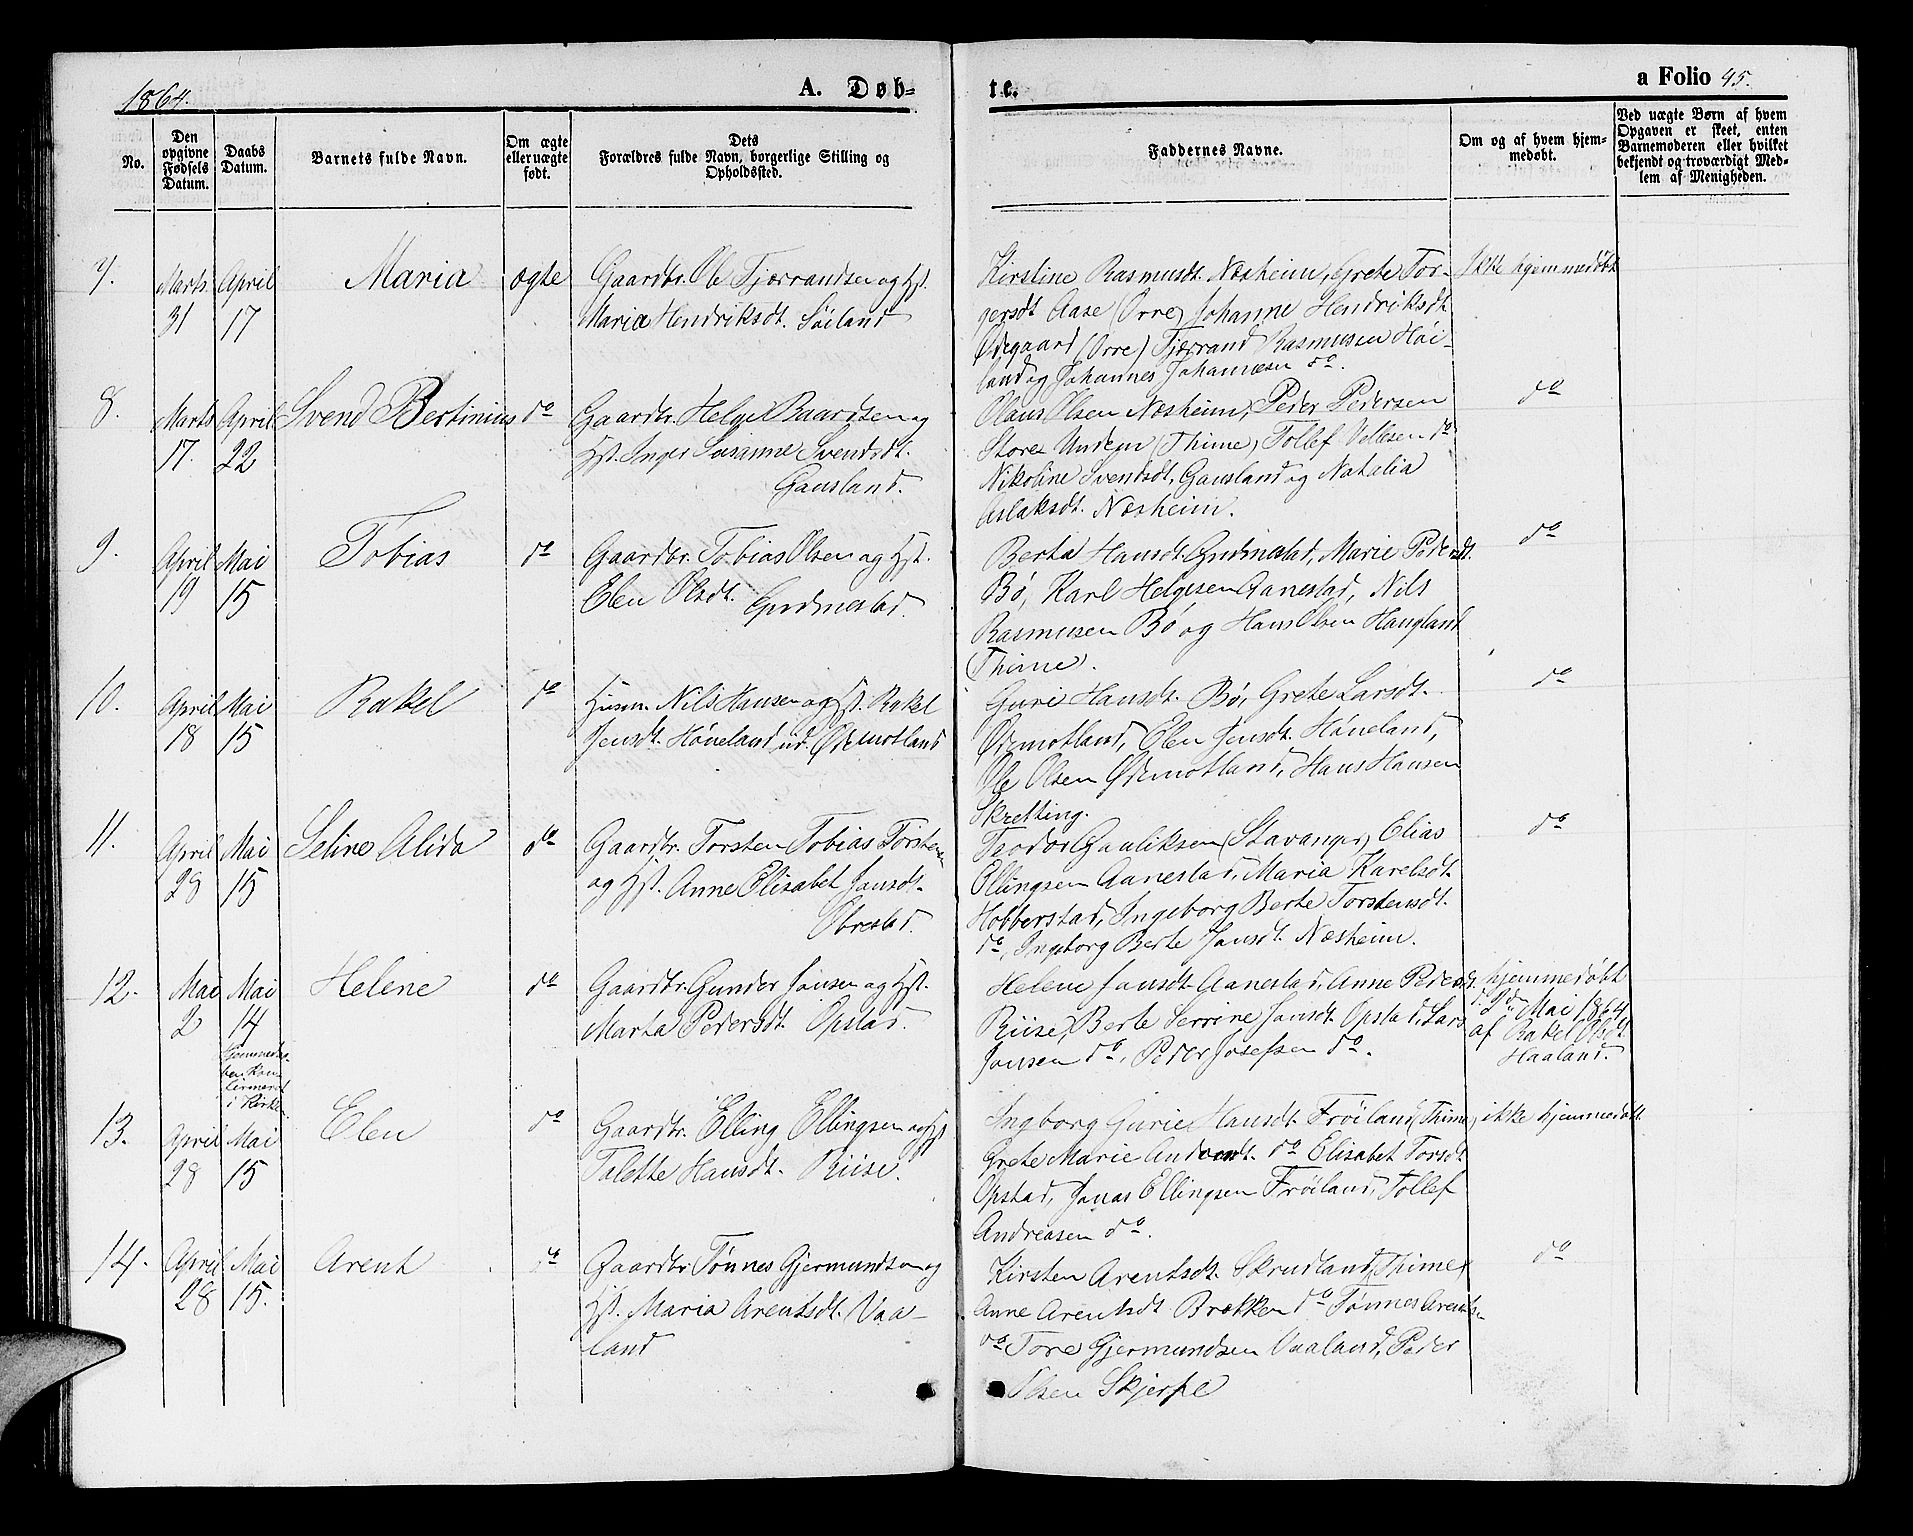 1864.
A. Døb-
te.
a Folio 45.
No.
Den opgivne Fødsels Datum.
Daabs Datum.
Barnets fulde Navn.
Om ægte eller uægte født.
Dets Forældres fulde Navn, borgerlige Stilling og Opholdssted.
Faddernes Navne.
Om og af hvem hjemmedøbt.
Ved uægte Børn af hvem Opgaven er skeet, enten Barnemoderen eller hvilket bekjendt og troværdigt Medlem af Menigheden.
7. Marts 31 April 17 Maria ægte
Gaardbr. Ole Tjærrandsen og Hst.
Maria Hendriksdt. Søiland
Kirstine Rasmusdt. Næsheim, Grete Tor-
gersdt Aase (Orre) Johanne Hendriksdt
Ødegaard (Orre) Tjærrand Rasmusen Høi-
land og Johannes Johannesen do.
Ikke hjemmedøbt
8. Marts 17. April 22 Svend Bertinius do
Gaardbr. Helge Baardsen og
Hst. Inger Susanne Svendsdt.
Gausland.
Olaus Olsen Næsheim, Peder Pedersen
Store Undem (Thime) Tollef Vellesen do
Nikoline Svendsdt. Gausland og Natalia
Aslaksdt. Næsheim.
do
9. April 19 Mai 15 Tobias do
Gaardbr. Tobias Olsen og Hst.
Elen Olsdt. Grødmestad.
Berta Hansdt. Grødmestad, Marie Pedersdt.
Bø, Karl Helgesen Aanestad, Nils
Rasmusen Bø og Hans Olsen Haugland
(Thime).
do
10. April 18 Mai 15 Rakel do
Husm. Nils Hansen og Hst. Rakel
Jensdt. Høneland ud. Ødemotland
Guri Hansdt. Bø, Grete Larsdt.
Ødemotland, Elen Jensdt. Høneland,
Ole Olsen Ødemotland, Hans Hansen
Skretting.
do
11. April 28 Mai 15 Seline Alida do
Gaardbr. Torsten Tobias Torstensen
og Hst. Anne Elisabet Jansdt.
Obrestad.
Teodor Gauliksen (Stavanger) Elias
Ellingsen Aanestad, Maria Karelsdt.
Hobberstad, Ingeborg Berte Torstensdt.
do, Ingeborg Berte Jansdt. Næsheim.
do
12. Mai 2 Mai 14 Helene do
Hjemmedaaben Konfirmeret i Kirken.
Gaardbr. Gunder Jansen og Hst.
Marta Pedersdt. Opstad.
Helene Jansdt. Aanestad, Anne Pedersdt.
Riise, Berte Serrine Jansdt. Opstad, Lars
Jansen do, Peder Josefsen do.
hjemmedøbt
d. 2den Mai 1864
af Rakel Olsdt.
Haaland.
13. April 28 Mai 15 Elen do
Gaardbr. Elling Ellingsen og Hst
Talette Hansdt. Riise.
Ingborg Gurie Hansdt. Frøiland, (Thime)
Grete Marie Andorsdt. do Elisabet Torsdt.
Opstad, Jonas Ellingsen Frøiland, Tollef
Andreasen do.
ikke hjemmedøbt
14. April 28 Mai 15. Arent do
Gaardbr Tønnes Gjermundsen og
Hst. Maria Arentsdt. Vaa-
land
Kirsten Arentsdt. Skrudland, (Thime)
Anne Arentsdt. Brækken do Tønnes Arents-
do Tore Gjermundsen Vaaland, Peder
Olsen Skjerpe
do